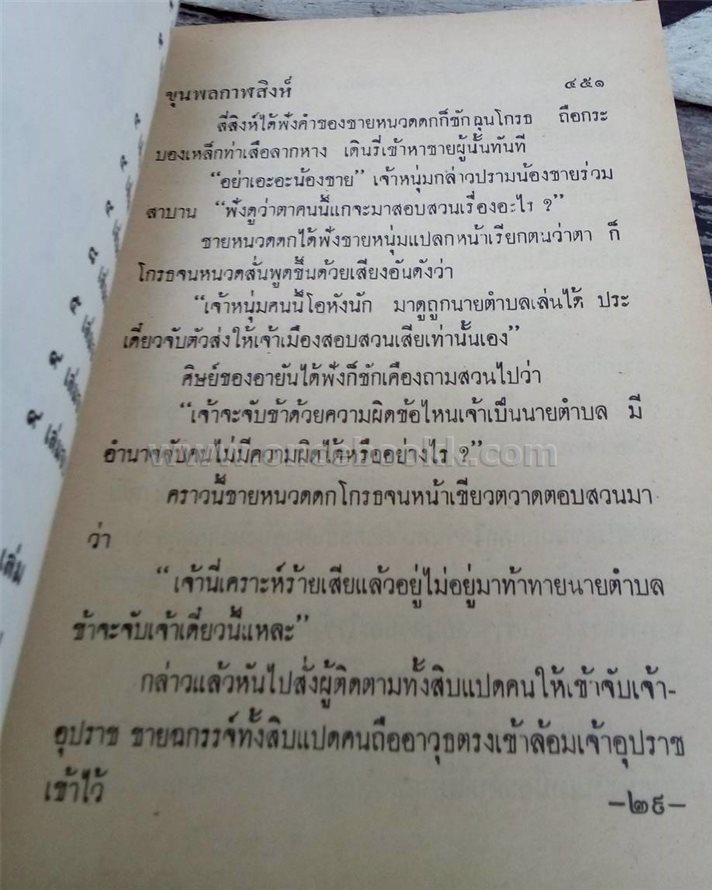 ขุนพลกาฬสิงห์ ๔๕๑
สี่สิงห์ได้ฟังคำของชายหนวดดกก็ชักฉุนโกรธ ถือกระ
บองเหล็กท่าเสือลากหาง เดินรี่เข้าหาชายผู้นั้นทันที
"อย่าเอะอะน้องชาย" เจ้าหนุ่มกล่าวปรามน้องชายร่วม
สาบาน "ฟังดูว่าตาคนนี้แกจะมาสอบสวนเรื่องอะไร ?"
ชายหนวดดกได้ฟังชายหนุ่มแปลกหน้าเรียกตนว่าตา ก็
โกรธจนหนวดสั่นพูดขึ้นด้วยเสียงอันดังว่า
"เจ้าหนุ่มคนนี้โอหังนัก มาดูถูกนายตำบลเล่นได้ ประ
เดี๋ยวจับตัวส่งให้เจ้าเมืองสอบสวนเสียเท่านั้นเอง"
ศิษย์ของอายันได้ฟังก็ชักเคืองถามสวนไปว่า
"เจ้าจะจับข้าด้วยความผิดข้อไหนเจ้าเป็นนายตำบล มี
อำนาจจับคนไม่มีความผิดได้หรืออย่างไร ?"
คราวนี้ชายหนวดดกโกรธจนหน้าเขียวตวาดตอบสวนมา
ว่า
"เจ้านี่เคราะห์ร้ายเสียแล้วอยู่ไม่อยู่มาท้าทายนายตำบล
ข้าจะจับเจ้าเดี๋ยวนี้แหละ"
กล่าวแล้วหันไปสั่งผู้ติดตามทั้งสิบแปดคนให้เข้าจับเจ้า-
อุปราช ชายฉกรรจ์ทั้งสิบแปดคนถืออาวุธตรงเข้าล้อมเจ้าอุปราช
เข้าไว้
—๒๙—